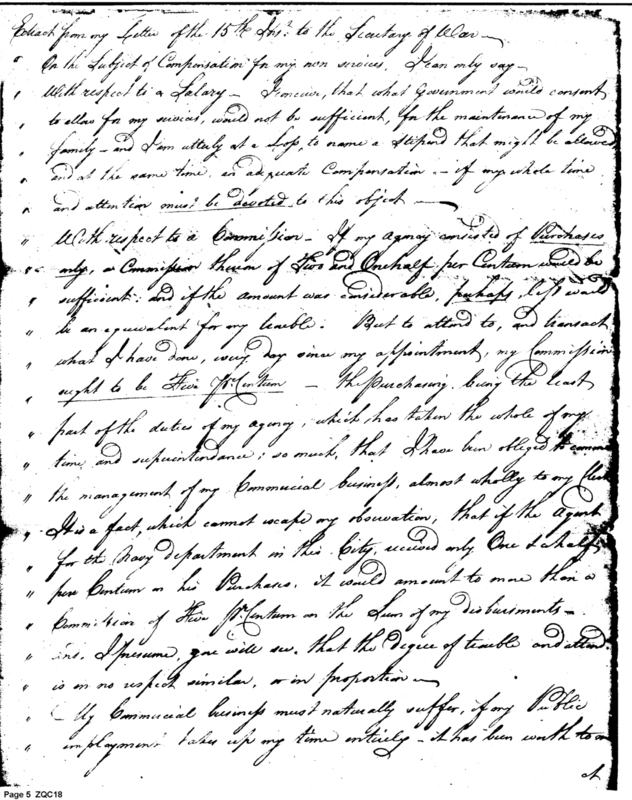 Extract from my Letter of the 15th Inst. to the Secretary of War —
" On the Subject of Compensation for my own services, I can only say —
" With respect to a Salary — I conceive, that what Government would consent
" to allow for my services, would not be sufficient, for the maintenance of my
" family — and I am utterly at a loss, to name a Stipend that might be allowed
" and at the same time, an adequate Compensation — if my whole time
" and attention must be devoted to this object —
" With respect to a Commission — If my agency consisted of Purchases
" only, a Commission thereon of Two and One half per Centum would be
" sufficient: and if the amount was considerable, perhaps, less would
" be an equivalent for my trouble. But to attend to, and transact
" what I have done, every day since my appointment, my Commission
" ought to be Five Pr. Centum — the purchasing, being the least
" part of the duties of my agency, which has taken the whole of my
" time and superintendance; so much, that I have been obliged to
" the management of my Commercial business, almost wholly to my Clerk
" It is a fact, which cannot escape my observation, that if the Agent
" for the Navy department in this City, received only One & a half
" per Centum on his Purchases, it would amount to more than a
" Commission of Five Pr. Centum on the Sum of my disbursments —
" I presume, you will see, that the degree of trouble and
" is in no respect similar, or in proportion —
" My Commercial business must naturally suffer, if my Public
" employment takes up my time entirely — it has been worth to
Page 5 ZQC18